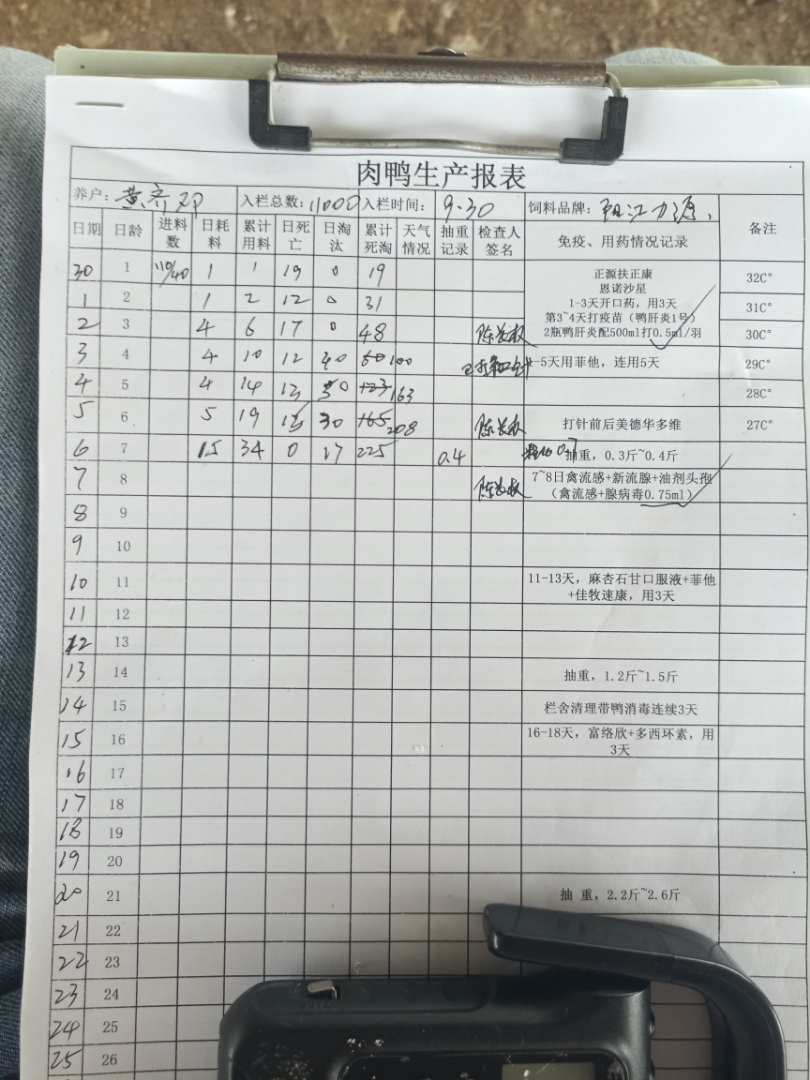 肉鸭生产报表
养户: 黄 入栏总数: 11000 入栏时间: 9.30 饲料品牌: 阳江力源
日期 日龄 进料数 日耗料 累计用料 日死亡 日淘汰 累计死淘 天气情况 抽重记录 检查人签名 免疫、用药情况记录 备注
30 1 110/40 1 1 19 0 19 正源扶正康 32C°
恩诺沙星
1 2 1 2 12 0 31 1-3天开口药，用3天 31C°
第3~4天打疫苗（鸭肝炎1号）
2 3 4 6 17 0 48 2瓶鸭肝炎配500ml打0.5ml/羽 30C°
3 4 4 10 12 40 100 -5天用菲他，连用5天 29C°
4 5 4 14 13 50 163 28C°
5 6 5 19 15 30 208 打针前后美德华多维 27C°
6 7 15 34 0 17 225 0.4 抽重，0.3斤~0.4斤
7 8 7~8日禽流感+新流腺+油剂头孢
（禽流感+腺病毒0.75ml）
8 9
9 10
10 11 11-13天，麻杏石甘口服液+菲他
+佳牧速康，用3天
11 12
12 13
13 14 抽重，1.2斤~1.5斤
14 15 栏舍清理带鸭消毒连续3天
15 16 16-18天，富络欣+多西环素，用
3天
16 17
17 18
18 19
19 20
20 21 抽 重，2.2斤~2.6斤
21 22
22 23
23 24
24 25
25 26